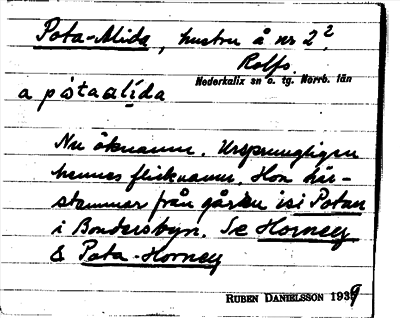 Pota-Alida, hustru å nr 2²,
Rolfs.
Nederkalix sn o. tg. Norrb. län
a pòtaalída
Nu öknamn. Ursprungligen
hennes flicknamn. Hon här-
stammar från gården isi Potan
i Bondersbyn. Se Horney
& Pota-Horney
RUBEN DANIELSSON 1939